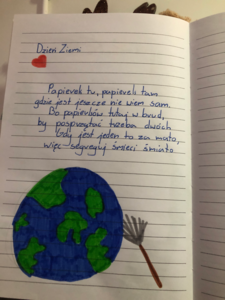 Dzień Ziemi
Papierek tu, papierek tam
gdzie jest jeszcze nie wiem sam.
Bo papierków tutaj w brud,
by posprzątać trzeba dwóch
Gdy jest jeden to za mało,
więc segreguj śmieci śmiało